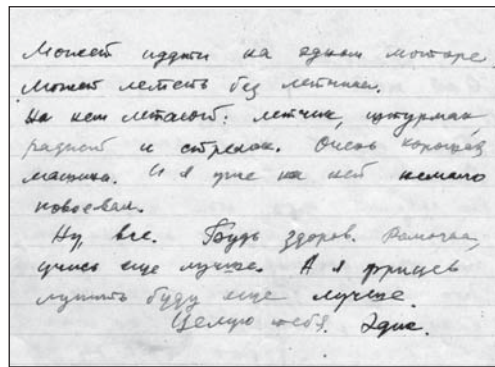 Может иддти на одном моторе.
Может лететь без летчика.
На нем летают: летчик, штурман,
радист и стрелок. Очень хорошая
машина. И я уже на ней немало
повоевал.
Ну, все. Будь здоров. Ромочка,
учись еще лучше. А я фрицев
лупить буду еще лучше.
Целую тебя. Эдик.